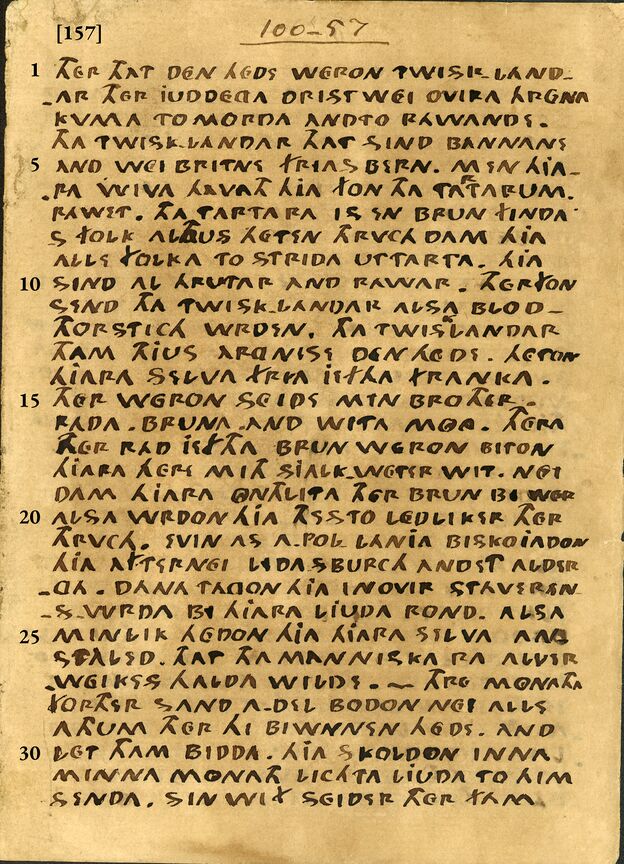 [157]
100-57
1 THER THAT DEN HEDE WERON TWISK-LAND-
-AR THER IUDDEGA DRISTWEI OVIRA HRENA
KVMA TO MORDA ANDTO RAWANDE.
THA TWISK-LANDAR THAT SIND BANNANE
5 AND WEI BRITNE FRIAS BERN. MEN HIA-
-RA WIVA HAVATH HIA FON THA TARTARUM.
RAWET. THA TARTARA IS EN BRUN FINDA
S FOLK ALTHUS HETEN THRVCH DAM HIA
ALLE FOLKA TO STRIDA UTTARTA. HIA
10 SIND AL HRUTAR AND RAWAR. THERFON
SEND THA TWISK-LANDAR ALSA BLOD-
THORSTICH WRDEN. THA TWISKLANDAR
THAM THIUS ARGNISE DEN HEDE. HETON
HIARA SELVA FRIA IEFTHA FRANKA.
15 THER WERON SEIDE MIN BROTHER.
RADA. BRUNA. AND WITA MOG. THERA
THER RAD IEFTHA BRUN WERON BITON
HIARA HERE MITH SIALK-WETER WIT. NEI
DAM HIARA ONTHLITA THER BRUN BI WER
20 ALSA WRDON HIA THESTO LEDLIKER THER
THRVCH. EVIN AS A.POL LANIA BISKOIADON
HIA AFTERNEI LIDASBURCH ANDET ALDER
-GA. DANA TAGON HIA IN OVIR STAVEREN
-S-WRDA BI HIARA LIUDA ROND. ALSA
25 MINLIK HEDON HIA HIARA SELVA ANG
STALED. THAT THA MANNISKA RA ALLER
-WEIKES HALDA WILDE. ~ THRE MONATHA
FORTHER SAND A-DEL BODON NEI ALLE
AHUM THER HI BIWNNEN HEDE. AND
30 LET THAM BIDDA. HIA SKOLDON INNA
MINNA MONATH LICHTA LIUDA TO HIM
SENDA. SIN WIF SEIDER THER FAM